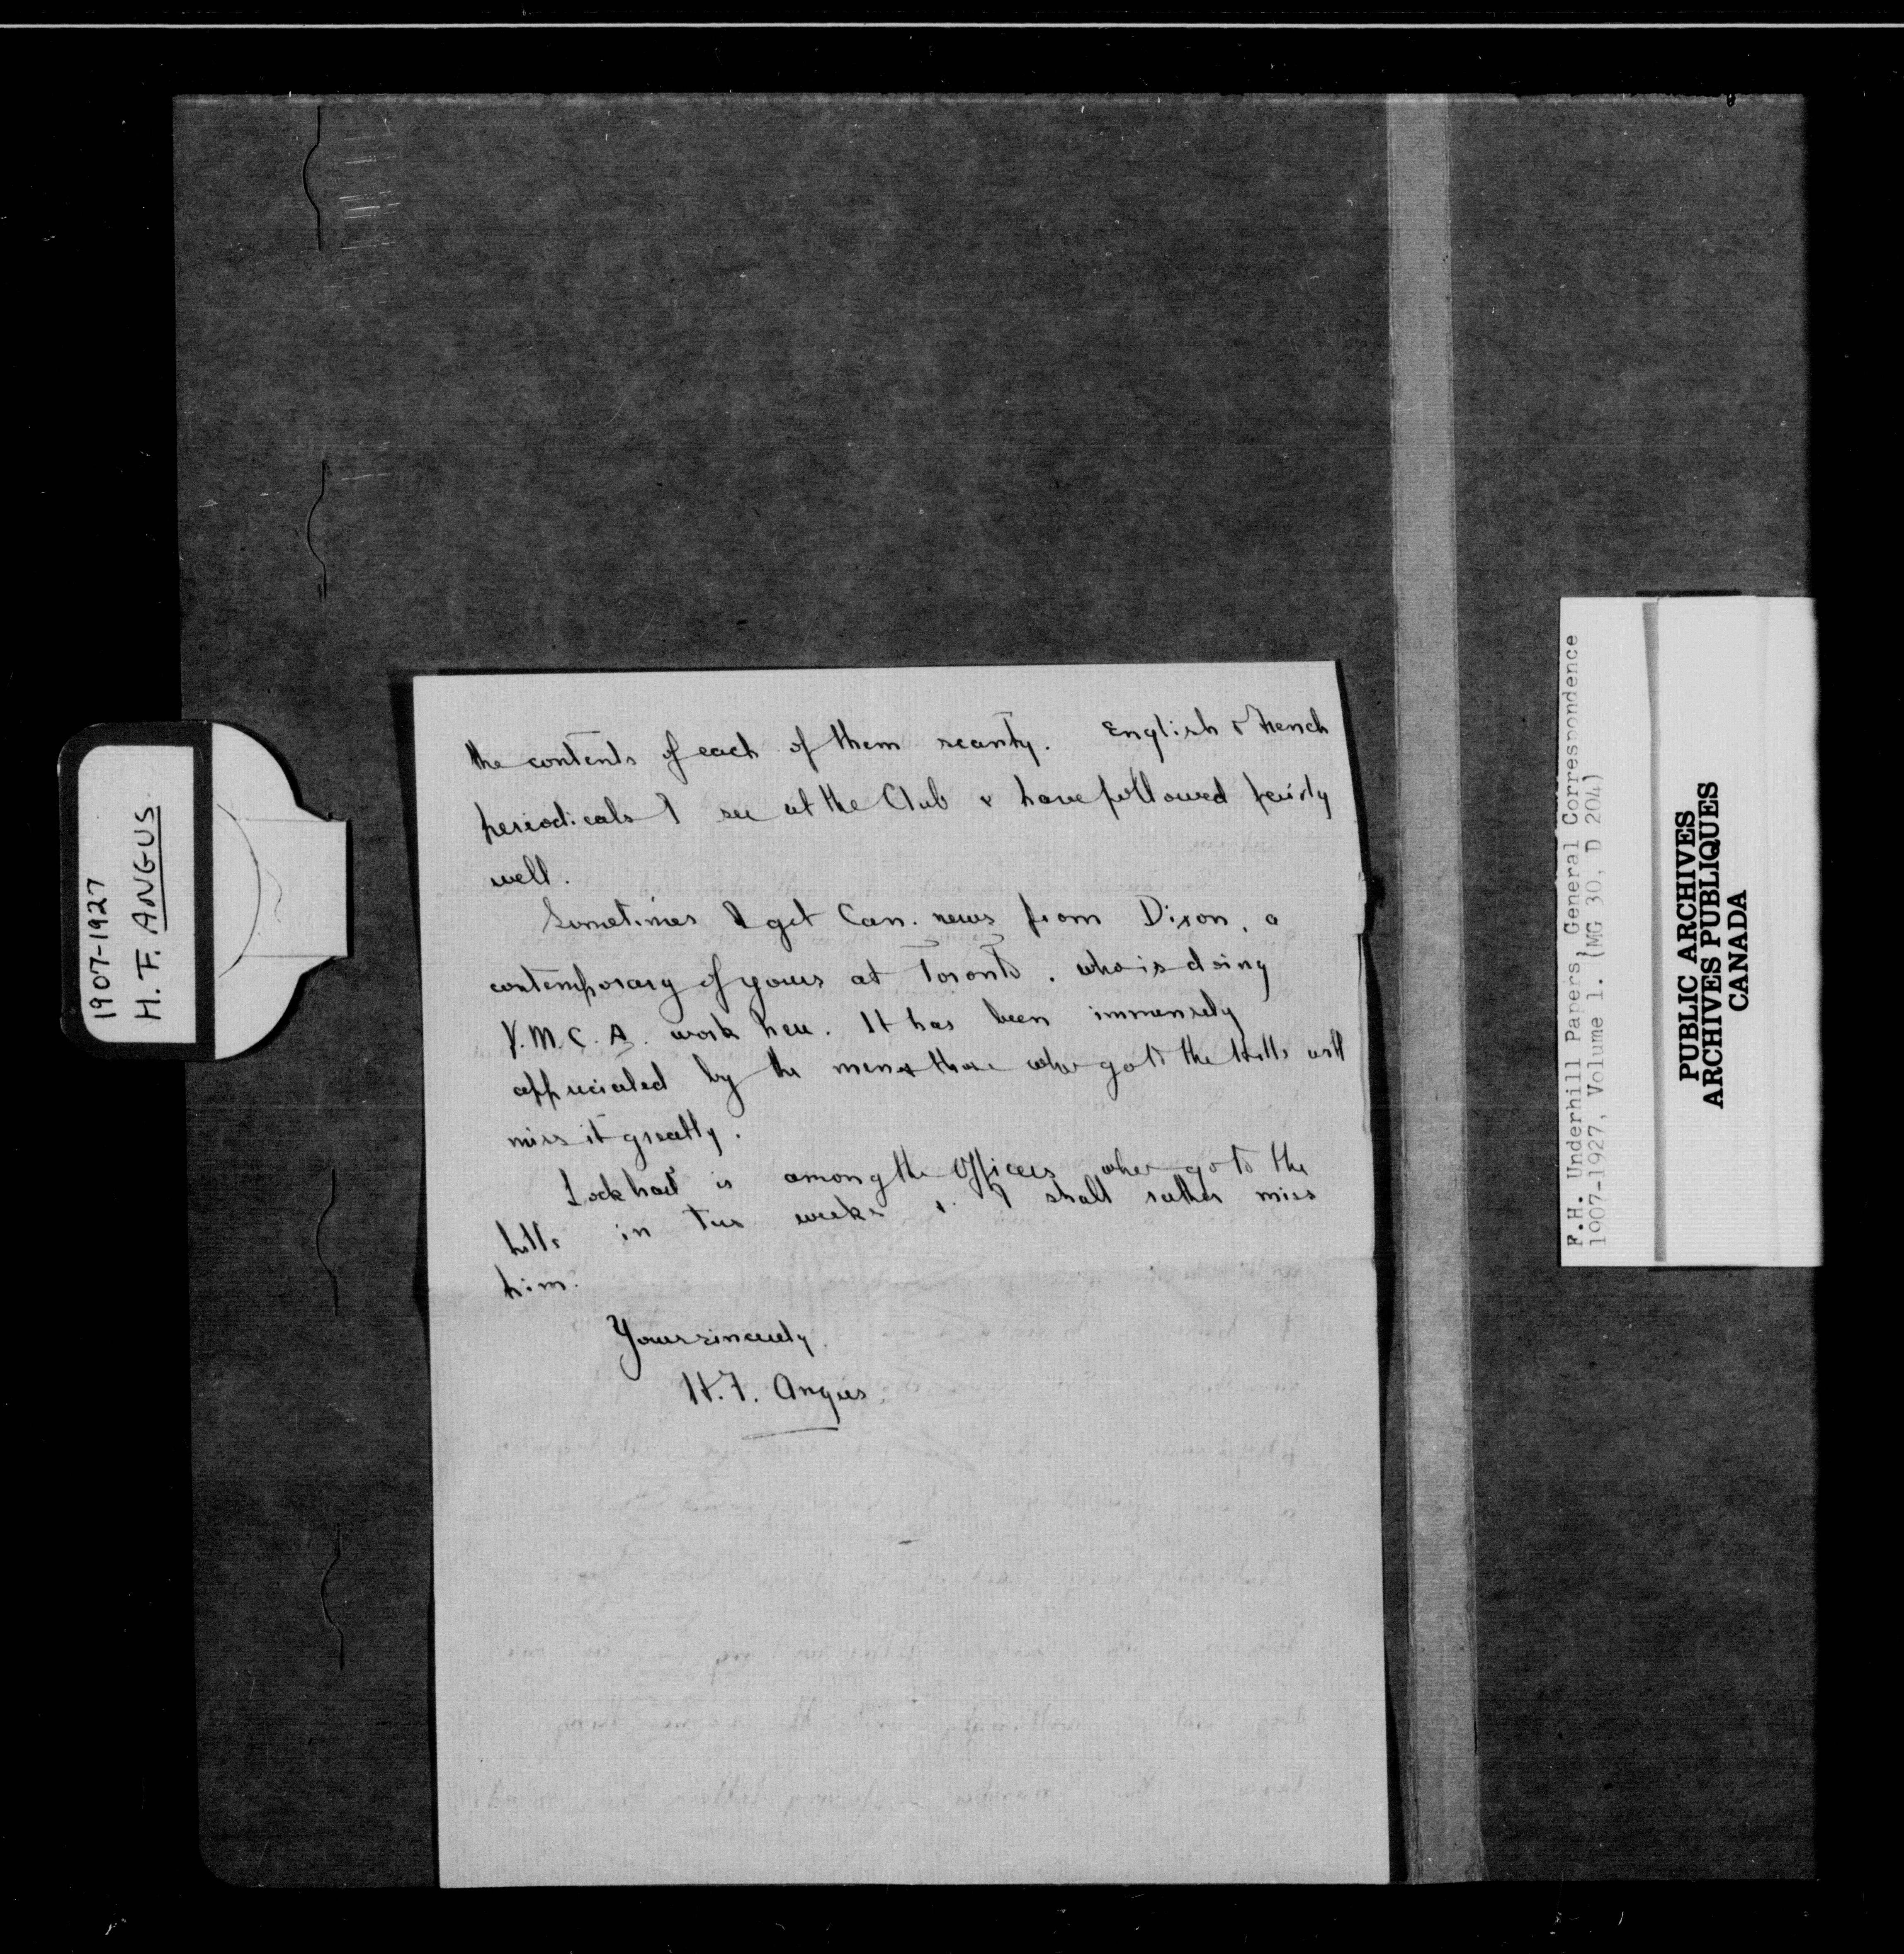 the contents of each of them scanty. English & French
periodicals I see at the Club & have followed fairly
well.
Sometimes I get Can. news from Dixon, a
contemporary of yours at Toronto. who is doing
Y.M.C.A. work here. It has been immensely
appreciated by the men & those who go to the Hills will
miss it greatly.
Lockhart is among the Officers who go to the
hills in two weeks & I shall rather miss
him.
Yours sincerely.
H.F. Angus.
1907-1927
H.F. ANGUS
F.H. Underhill Papers, General Correspondence
1907-1927, Volume 1. (MG 30, D 204)
PUBLIC ARCHIVES
ARCHIVES PUBLIQUES
CANADA